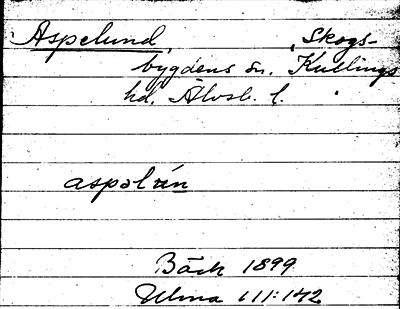 Aspelund, Skogs-
bygdens sn. Kullings
hd. Älvsb. l.
aspəlún
Bäck 1899
Ulma 111:142